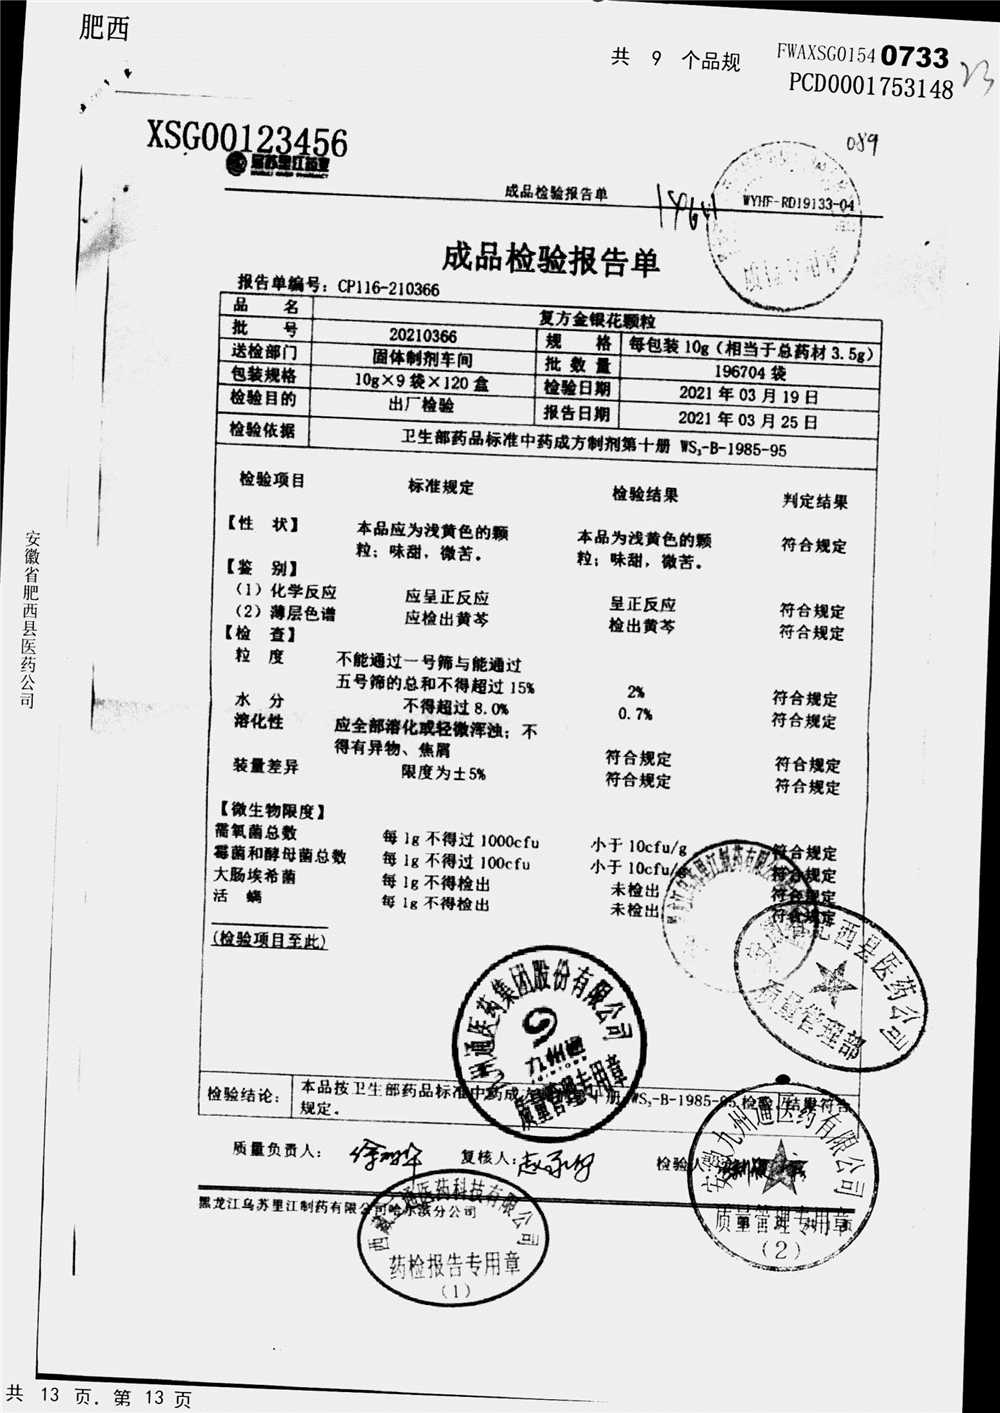 肥西
共 9 个品规
FWAXSG0154 0733
PCD0001753148
23
XSG00123456
089
成品检验报告单
WYHF-RD19133-04
成品检验报告单
报告单编号：CP116-210366
品 名 复方金银花颗粒
批 号 20210366 规 格 每包装10g（相当于总药材3.5g）
送检部门 固体制剂车间 批数量 196704 袋
包装规格 10g×9袋×120盒 检验日期 2021年03月19日
检验目的 出厂检验 报告日期 2021年03月25日
检验依据 卫生部药品标准中药成方制剂第十册 WS₃-B-1985-95
检验项目 标准规定 检验结果 判定结果
【性 状】 本品应为浅黄色的颗 本品为浅黄色的颗 符合规定
粒；味甜，微苦。 粒；味甜，微苦。
【鉴 别】
（1）化学反应 应呈正反应 呈正反应 符合规定
（2）薄层色谱 应检出黄芩 检出黄芩 符合规定
【检 查】
粒 度 不能通过一号筛与能通过
五号筛的总和不得超过15% 2% 符合规定
水 分 不得超过8.0% 0.7% 符合规定
溶化性 应全部溶化或轻微浑浊；不
得有异物、焦屑 符合规定 符合规定
装量差异 限度为±5% 符合规定 符合规定
【微生物限度】
需氧菌总数 每1g不得过1000cfu 小于10cfu/g 符合规定
霉菌和酵母菌总数 每1g不得过100cfu 小于10cfu/g 符合规定
大肠埃希菌 每1g不得检出 未检出 符合规定
活 螨 每1g不得检出 未检出 符合规定
（检验项目至此）
安徽省肥西县医药公司
质量管理部
九州通医药集团股份有限公司
九州通
质量管理专用章
检验结论： 本品按卫生部药品标准中药成方制剂第十册 WS₃-B-1985-95检验，结果符合
规定。
质量负责人： 复核人： 检验人：
安徽九州通医药有限公司
质量管理专用章
（2）
黑龙江乌苏里江制药有限公司哈尔滨分公司
药检报告专用章
（1）
安徽省肥西县医药公司
共 13 页．第 13 页